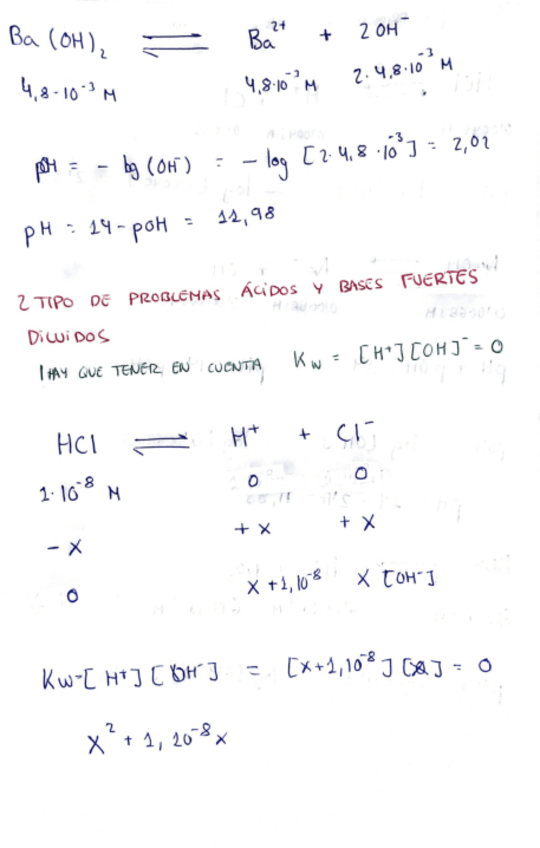 Ba (OH)₂ ⇌ Ba²⁺ + 2 OH⁻
4,8·10⁻³ M 4,8·10⁻³ M 2·4,8·10⁻³ M
pOH = - log (OH⁻) = - log [2·4,8·10⁻³] = 2,02
pH = 14 - pOH = 11,98
2 TIPO DE PROBLEMAS ÁCIDOS Y BASES FUERTES
DILUIDOS
! HAY QUE TENER EN CUENTA Kw = [H⁺][OH]⁻ = 0
HCl ⇌ H⁺ + Cl⁻
1·10⁻⁸ M 0 0
- x + x + x
0 x + 1,10⁻⁸ x [OH⁻]
Kw-[H⁺][OH⁻] = [x+1,10⁻⁸][x] = 0
x² + 1,10⁻⁸x